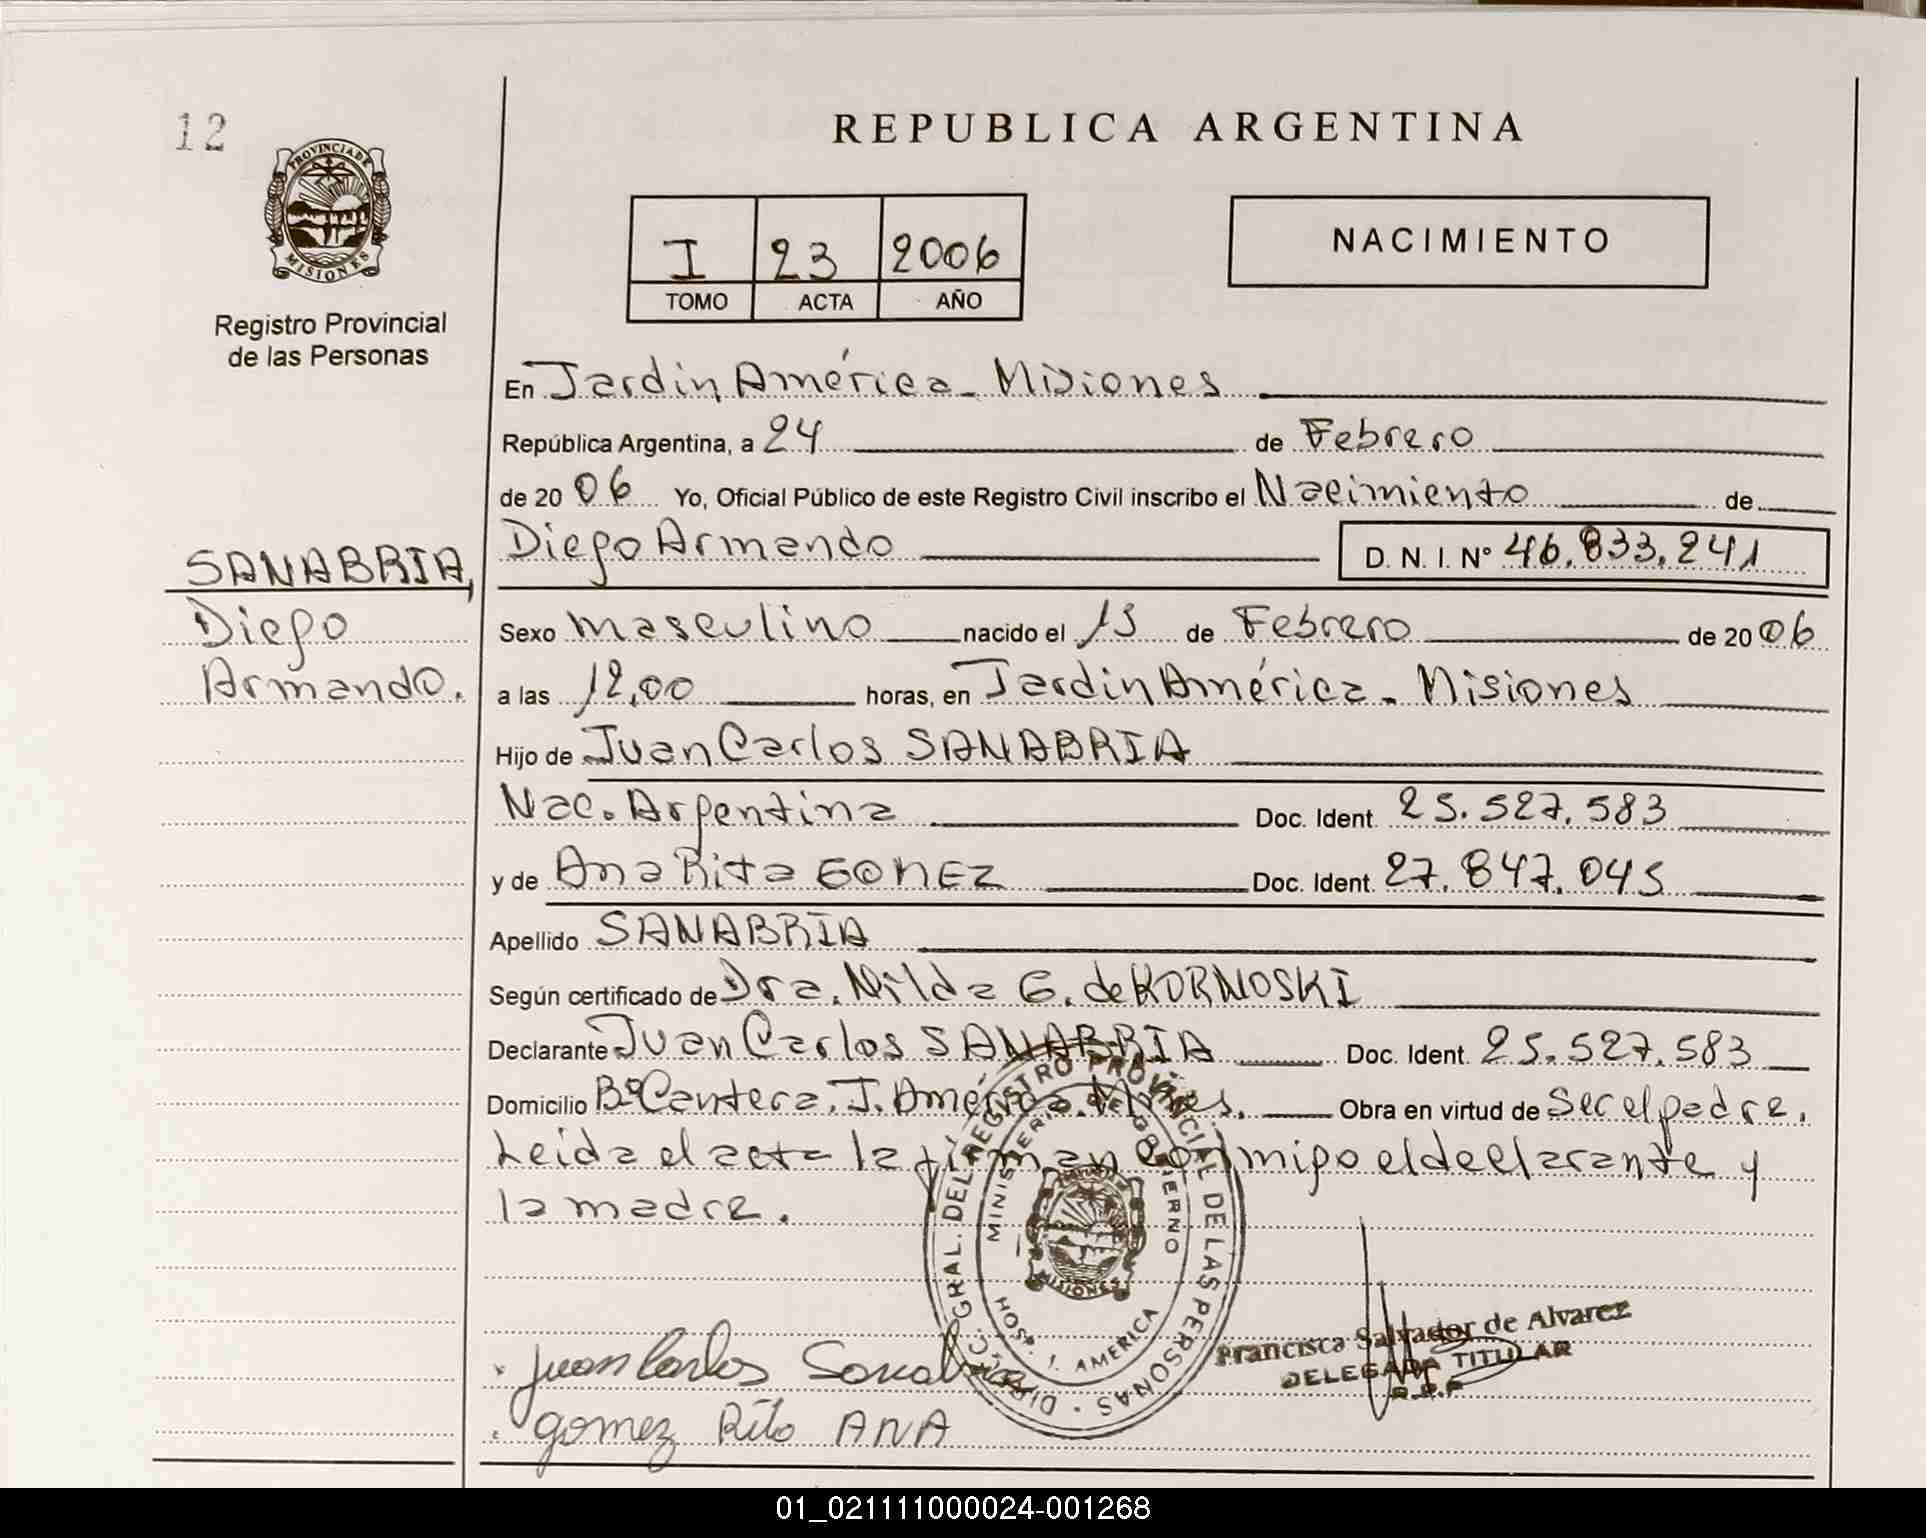 12
REPUBLICA ARGENTINA
PROVINCIA DE
MISIONES
Registro Provincial
de las Personas
I 23 2006
TOMO ACTA AÑO
NACIMIENTO
En Jardin América - Misiones
República Argentina, a 24 de Febrero
de 20 06 Yo, Oficial Público de este Registro Civil inscribo el Nacimiento de
Diego Armando D. N. I. N° 46.833.241
SANABRIA,
Diego
Armando.
Sexo masculino nacido el 13 de Febrero de 20 06
a las 12,00 horas, en Jardin América - Misiones
Hijo de Juan Carlos SANABRIA
Nac. Argentina Doc. Ident. 25.527.583
y de Ana Rita GOMEZ Doc. Ident. 27.847.045
Apellido SANABRIA
Según certificado de Dra. Nilda G. de KORNOSKI
Declarante Juan Carlos SANABRIA Doc. Ident. 25.527.583
Domicilio B° Cantera. J. América. Mnes. Obra en virtud de Ser el padre.
Leida el acta la firman conmigo el declarante y
la madre.
DIREC. GRAL. DEL REGISTRO PROVINCIAL DE LAS PERSONAS
MINISTERIO DE GOBIERNO
MISIONES
HOSP. J. AMERICA
Francisca Salvador de Alvarez
DELEGADA TITULAR
R.P.P
Juan Carlos Sanabria
gomez Rita ANA
01_021111000024-001268